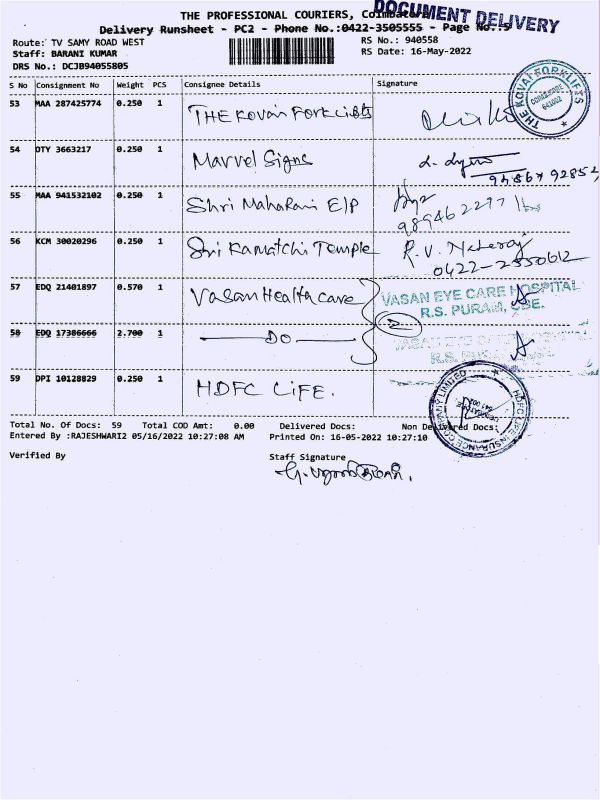 THE PROFESSIONAL COURIERS, Coimbatore
DOCUMENT DELIVERY
Delivery Runsheet - PC2 - Phone No.:0422-3505555 - Page No.:5
Route: TV SAMY ROAD WEST RS No.: 940558
Staff: BARANI KUMAR RS Date: 16-May-2022
DRS No.: DCJB94055805
S No Consignment No Weight PCS Consignee Details Signature
53 MAA 287425774 0.250 1 THE Kovai Forklifts
THE KOVAI FORKLIFTS
COIMBATORE
641002
54 DTY 3663217 0.250 1 Marvel Signs
55 MAA 941532102 0.250 1 Shri Maharani E/P
56 KCM 30020296 0.250 1 Sri Kamatchi Temple R.V. Nataraj
0422-2550612
57 EDQ 21401897 0.570 1 Vasan Health care VASAN EYE CARE HOSPITAL
R.S. PURAM, CBE.
58 EDQ 17386666 2.700 1 DO VASAN EYE CARE HOSPITAL
R.S. PURAM, CBE.
59 DPI 10128829 0.250 1 HDFC LiFE.
HDFC LIFE INSURANCE COMPANY LIMITED
Total No. Of Docs: 59 Total COD Amt: 0.00 Delivered Docs: Non Delivered Docs:
Entered By :RAJESHWARI2 05/16/2022 10:27:08 AM Printed On: 16-05-2022 10:27:10
Verified By Staff Signature